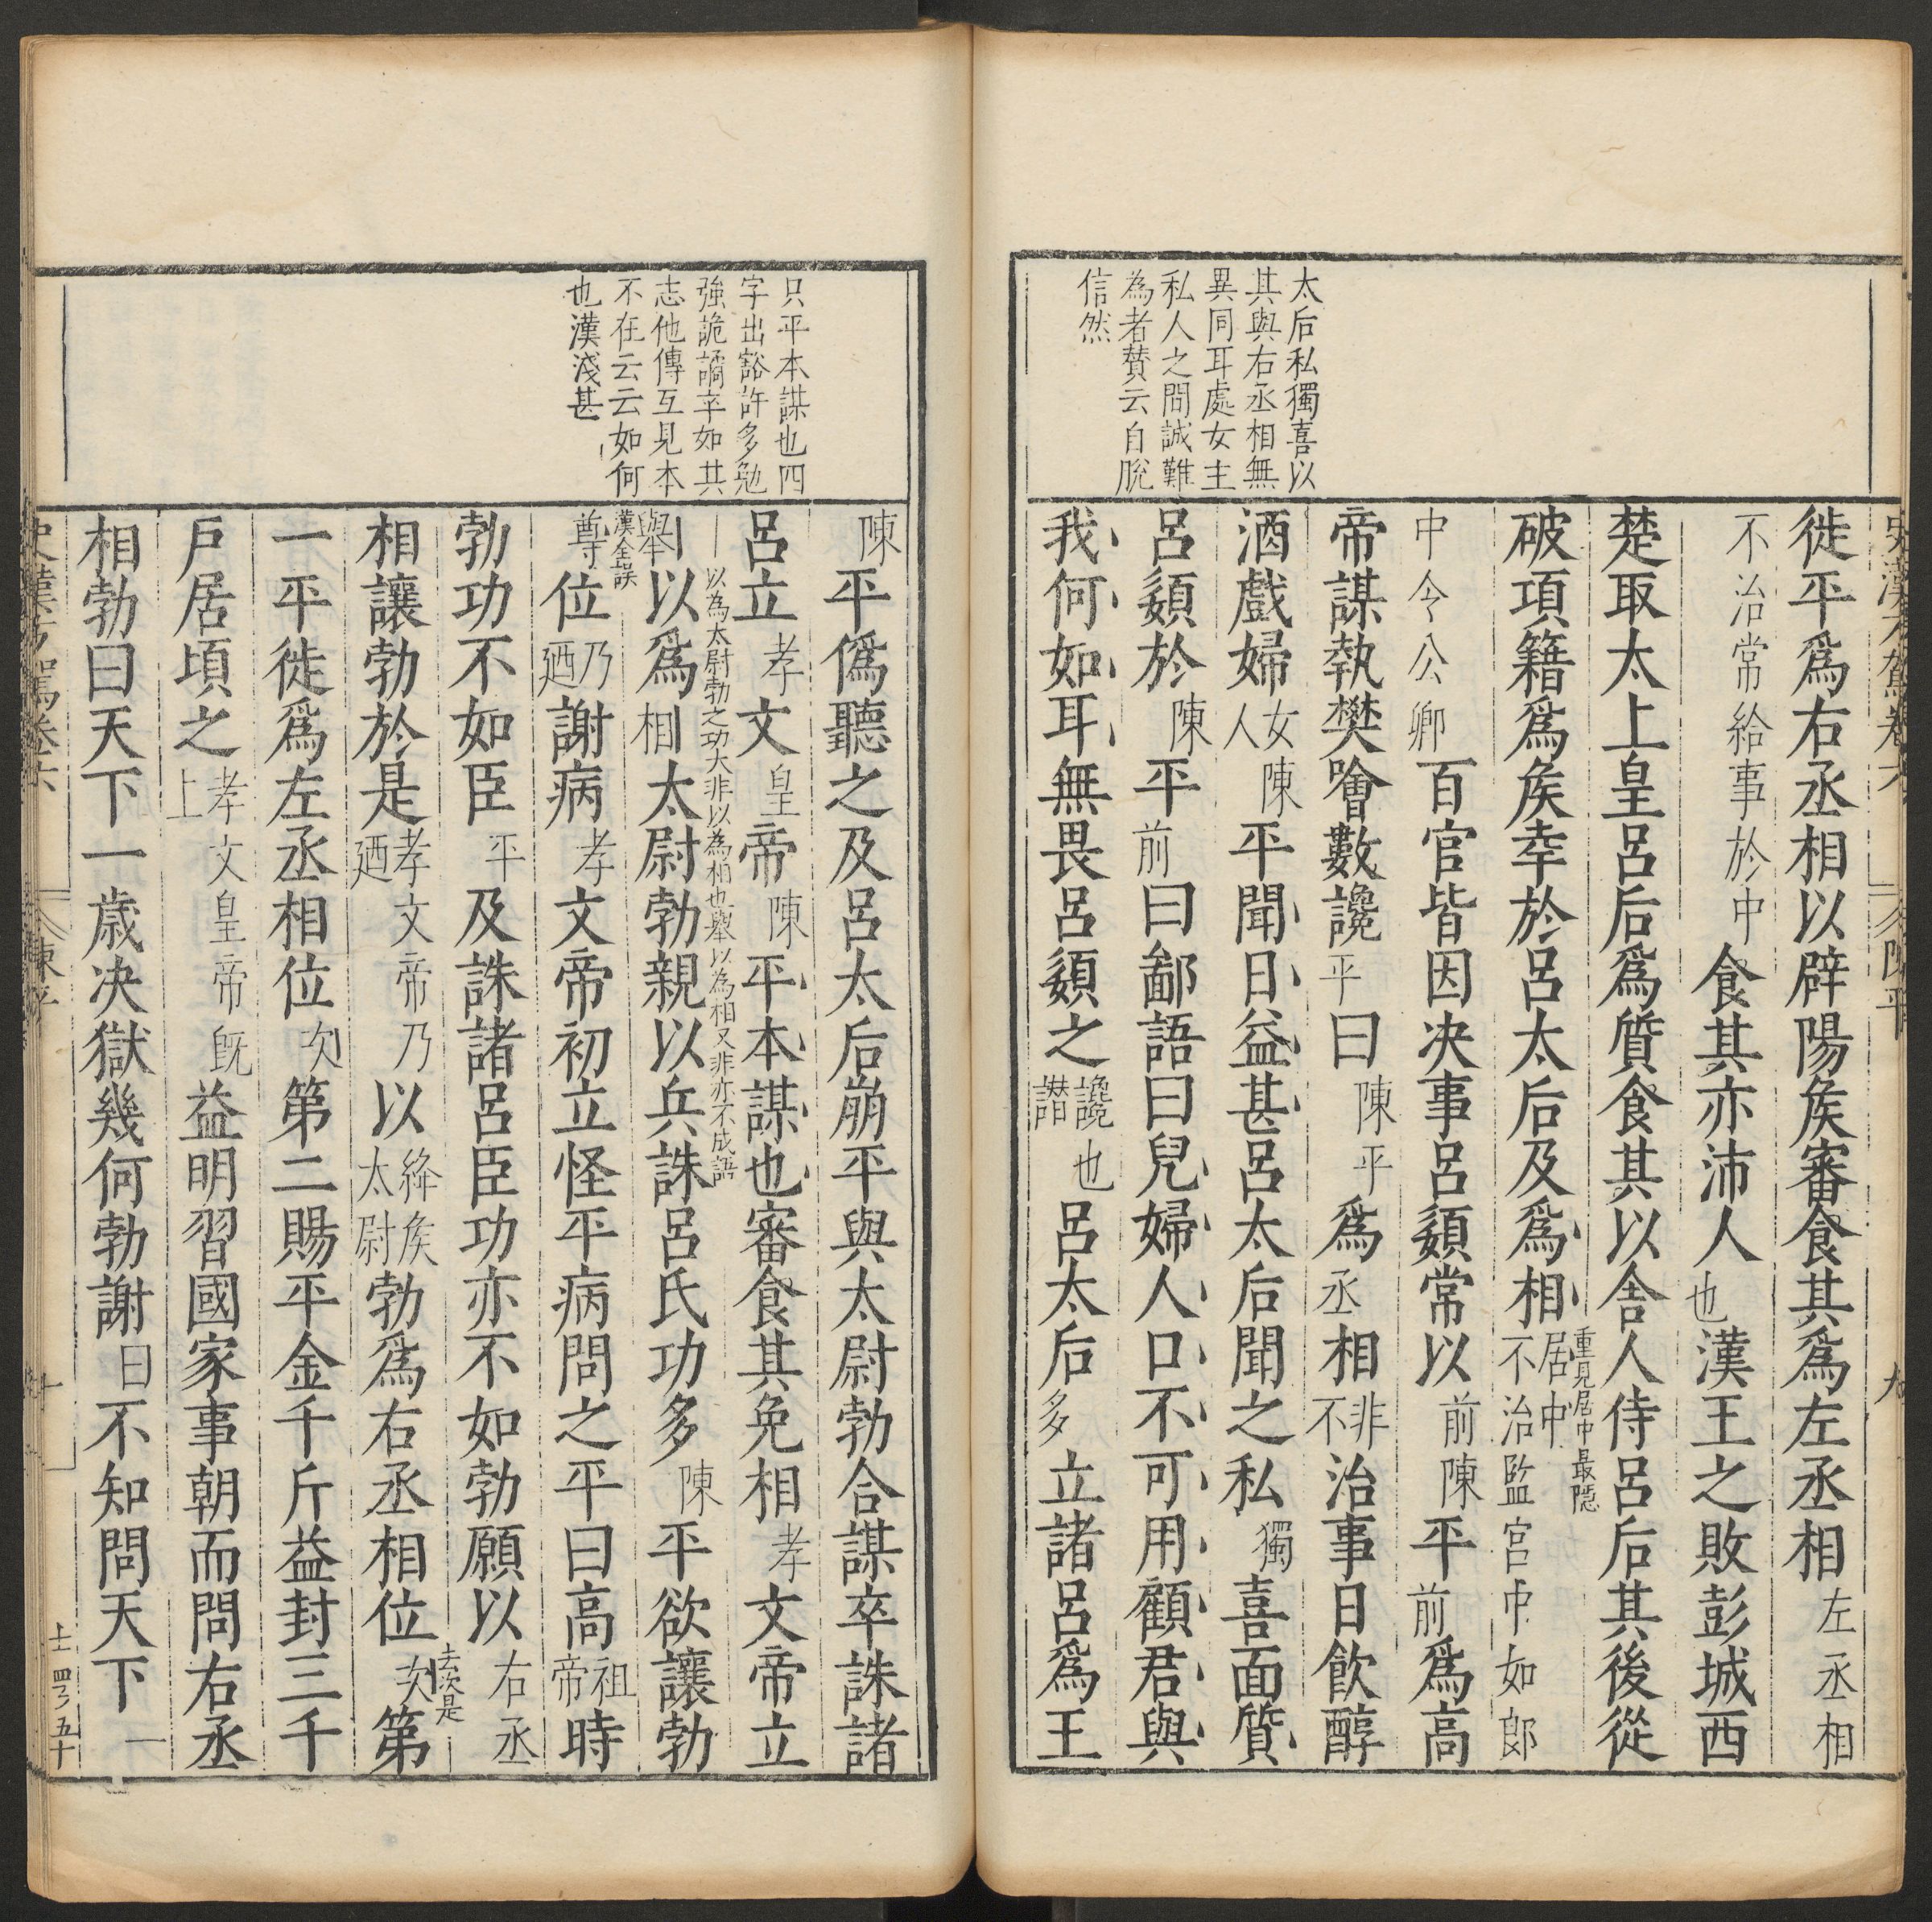 太后私獨喜以
其與右丞相無
異同耳處女主
私人之間誠難
為者贊云自脫
信然
徙平爲右丞相以辟陽矦審食其爲左丞相左丞相
不治常給事於中食其亦沛人也漢王之敗彭城西
楚取太上皇呂后爲質食其以舍人侍呂后其後從
重見居中最隱
破項籍爲矦幸於呂太后及爲相居中不治監宮中如郎
中令公卿百官皆因决事呂嬃常以前陳平前爲高
帝謀執樊噲數讒平曰陳平爲丞相非不治事日飲醇
酒戲婦女人陳平聞日益甚呂太后聞之私獨喜面質
呂嬃於陳平前曰鄙語曰兒婦人口不可用顧君與
我何如耳無畏呂嬃之讒譖也呂太后多立諸呂爲王
只平本謀也四
字出豁許多勉
強詭譎卒如其
志他傳互見本
不在云云如何
也漢淺甚
陳平僞聽之及呂太后崩平與太尉勃合謀卒誅諸
呂立孝文皇帝陳平本謀也審食其免相孝文帝立
以為太尉勃之功大非以為相也舉以為相又非亦不成語
舉以爲相太尉勃親以兵誅呂氏功多陳平欲讓勃
漢全誤
尊位乃廼謝病孝文帝初立怪平病問之平曰高祖帝時
勃功不如臣平及誅諸呂臣功亦不如勃願以右丞
去次是
相讓勃於是孝廼文帝乃以絳矦太尉勃爲右丞相位次第
一平徙爲左丞相位次第二賜平金千斤益封三千
戶居頃之孝上文皇帝旣益明習國家事朝而問右丞
相勃曰天下一歲决獄幾何勃謝曰不知問天下一
史漢方駕卷六
陳平
十